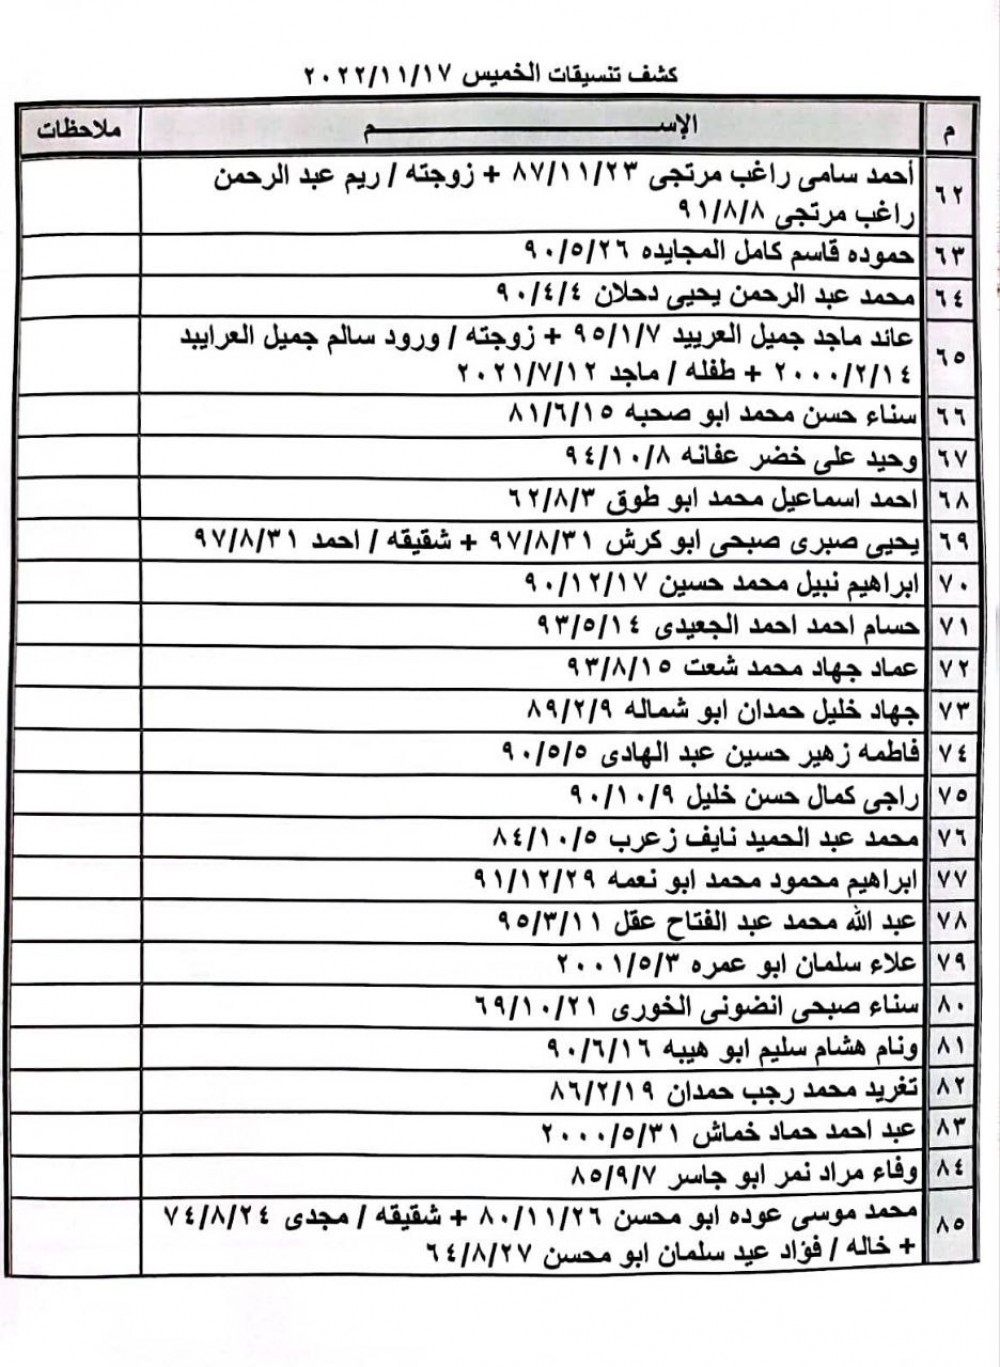 كشف تنسيقات الخميس ٢٠٢٢/١١/١٧
م الإســـم ملاحظات
٦٢ أحمد سامى راغب مرتجى ٨٧/١١/٢٣ + زوجته / ريم عبد الرحمن
راغب مرتجى ٩١/٨/٨
٦٣ حموده قاسم كامل المجايده ٩٠/٥/٢٦
٦٤ محمد عبد الرحمن يحيى دحلان ٩٠/٤/٤
٦٥ عائد ماجد جميل العرييد ٩٥/١/٧ + زوجته / ورود سالم جميل العرايبد
٢٠٠٠/٢/١٤ + طفله / ماجد ٢٠٢١/٧/١٢
٦٦ سناء حسن محمد ابو صحبه ٨١/٦/١٥
٦٧ وحيد على خضر عفانه ٩٤/١٠/٨
٦٨ احمد اسماعيل محمد ابو طوق ٦٢/٨/٣
٦٩ يحيى صبرى صبحى ابو كرش ٩٧/٨/٣١ + شقيقه / احمد ٩٧/٨/٣١
٧٠ ابراهيم نبيل محمد حسين ٩٠/١٢/١٧
٧١ حسام احمد احمد الجعيدى ٩٣/٥/١٤
٧٢ عماد جهاد محمد شعت ٩٣/٨/١٥
٧٣ جهاد خليل حمدان ابو شماله ٨٩/٢/٩
٧٤ فاطمه زهير حسين عبد الهادى ٩٠/٥/٥
٧٥ راجى كمال حسن خليل ٩٠/١٠/٩
٧٦ محمد عبد الحميد نايف زعرب ٨٤/١٠/٥
٧٧ ابراهيم محمود محمد ابو نعمه ٩١/١٢/٢٩
٧٨ عبد الله محمد عبد الفتاح عقل ٩٥/٣/١١
٧٩ علاء سلمان ابو عمره ٢٠٠١/٥/٣
٨٠ سناء صبحى انضونى الخورى ٦٩/١٠/٢١
٨١ ونام هشام سليم ابو هيبه ٩٠/٦/١٦
٨٢ تغريد محمد رجب حمدان ٨٦/٢/١٩
٨٣ عبد احمد حماد خماش ٢٠٠٠/٥/٣١
٨٤ وفاء مراد نمر ابو جاسر ٨٥/٩/٧
٨٥ محمد موسى عوده ابو محسن ٨٠/١١/٢٦ + شقيقه / مجدى ٧٤/٨/٢٤
+ خاله / فؤاد عيد سلمان ابو محسن ٦٤/٨/٢٧